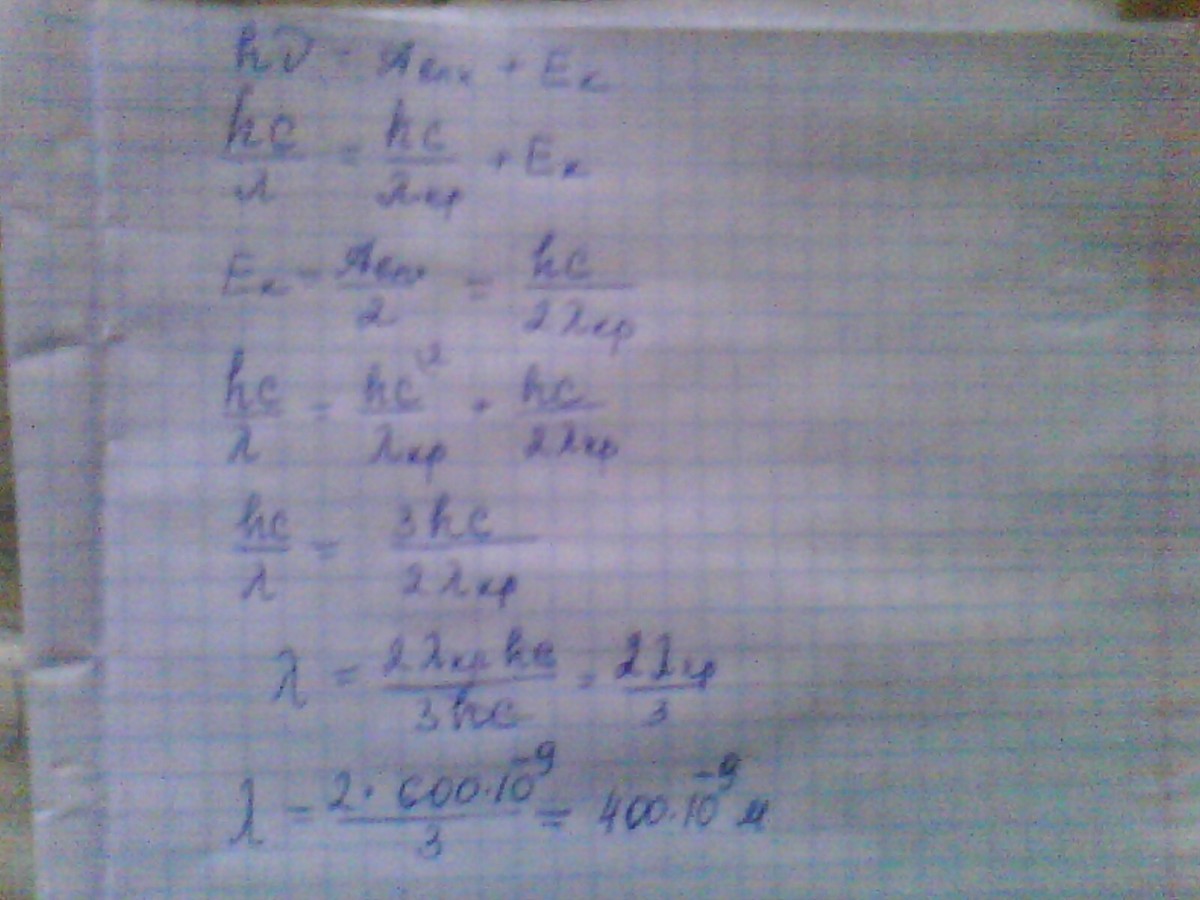 hν = Aвых + Eк
hc/λ = hc/λкр + Eк
Eк = Aвых/2 = hc/2λкр
hc/λ = hc\2/λкр + hc/2λкр
hc/λ = 3hc/2λкр
λ = 2λкр hc/3hc = 2λкр/3
λ = 2·600·10⁻⁹/3 = 400·10⁻⁹ м